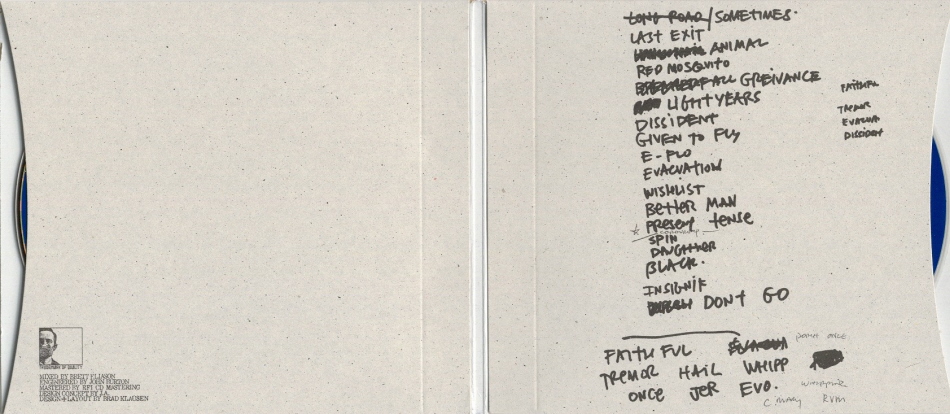 MIXED BY BRETT ELIASON
ENGINEERED BY JOHN BURTON
MASTERED BY RFI CD MASTERING
DESIGN CONCEPT BY J.A.
DESIGN + LAYOUT BY BRAD KLAUSEN
LONG ROAD / SOMETIMES.
LAST EXIT
ANIMAL
RED MOSQUITO
GREIVANCE
LIGHT YEARS
DISSIDENT
GIVEN TO FLY
E-FLO
EVACUATION
WISHLIST
BETTER MAN
PRESENT TENSE
SPIN
DAUGHTER
BLACK.
INSIGNIF
DONT GO
FAITHFUL
TREMOR
EVACUA
DISSIDENT
FAITH FUL
TREMOR HAIL WHIPP
ONCE JER EVO.
WHIPPING